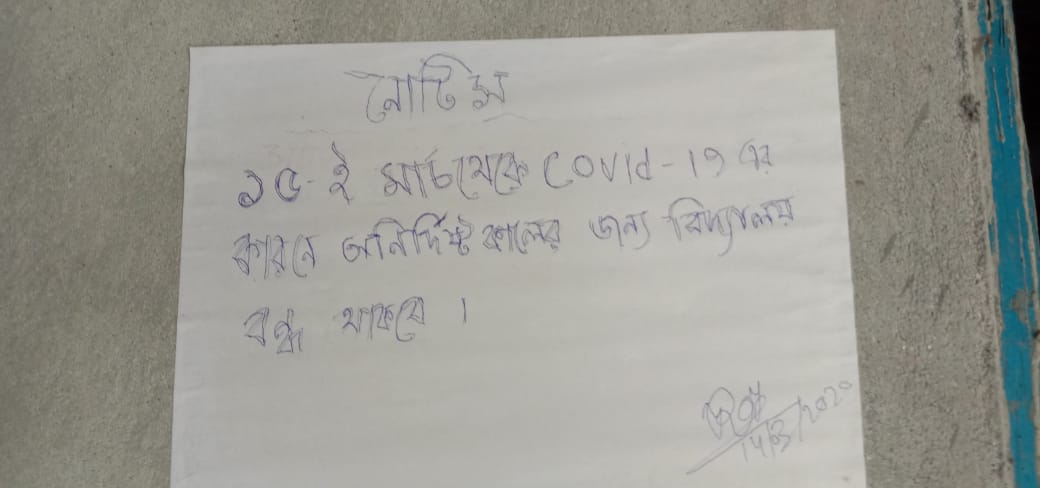 নোটিস
১৫-ই মার্চ থেকে COVID-19 এর
কারনে অনির্দিষ্ট কালের জন্য বিদ্যালয়
বন্ধ থাকবে ।
14/3/2020